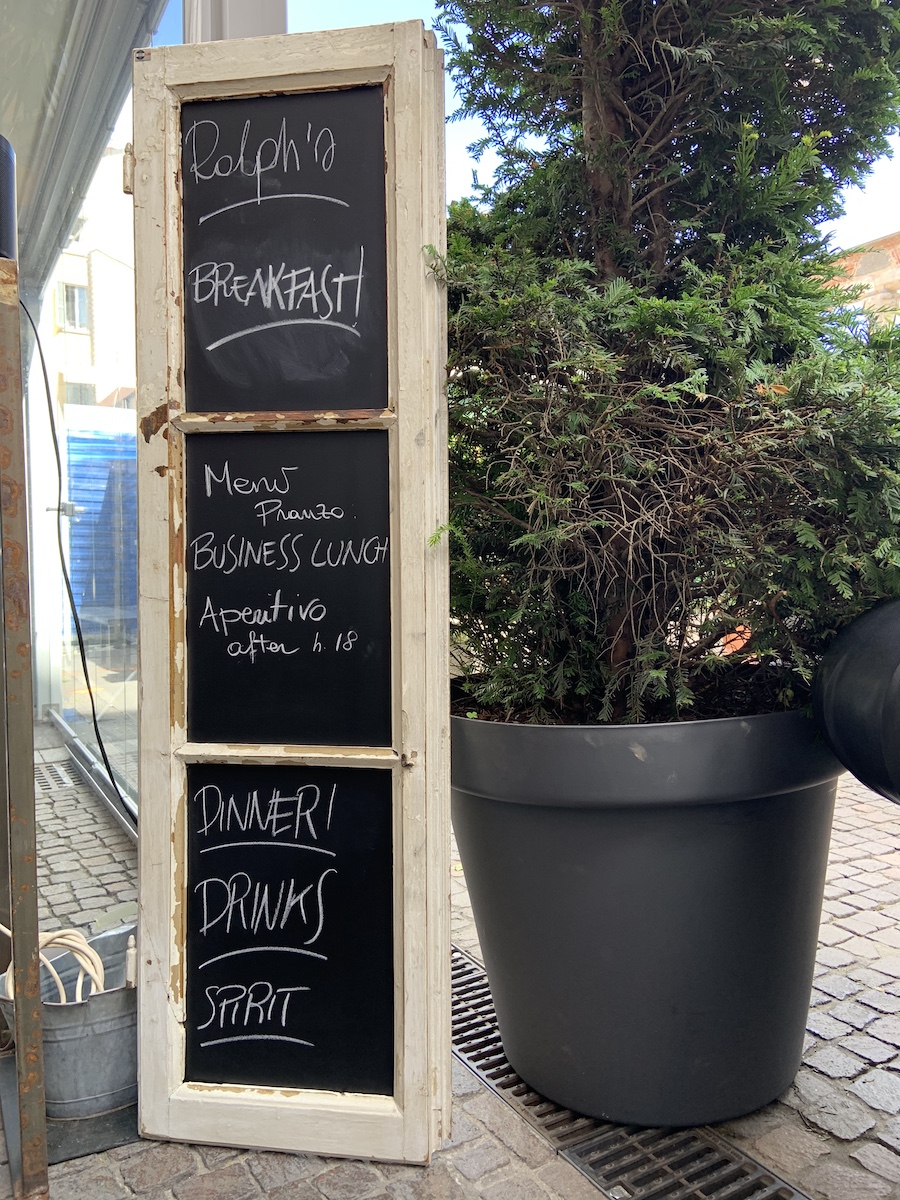 Ralph's
BREAKFAST!
Menù
Pranzo.
BUSINESS LUNCH
Aperitivo
after h. 18
DINNER!
DRINKS
SPIRIT